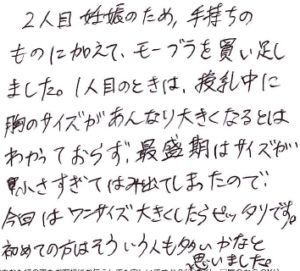 2人目 妊娠のため, 手持ちの
ものに加えて、モーブラを買い足し
ました。1人目のときは、授乳中に
胸のサイズがあんなり大きくなるとは
わかっておらず、最盛期はサイズが
小さすぎてはみ出てしまったので
今回はワンサイズ大きくしたらピッタリです。
初めての方はそういう人も多いかなと
思いました。